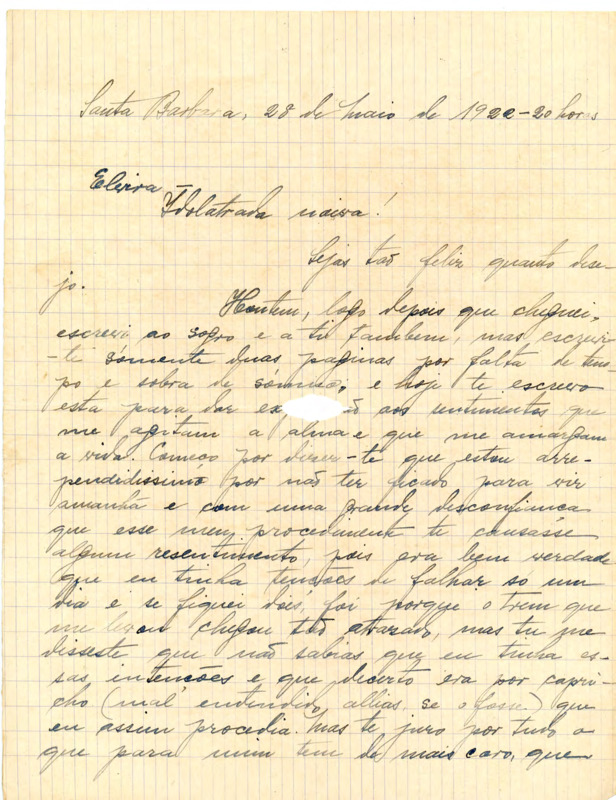 Santa Barbara, 28 de Maio de 1922 - 20 horas
Elvira
Idolatrada noiva!
Sejas tão feliz quanto dese-
jo.
Hontem, logo depois que cheguei,
escrevi ao sogro e a ti tambem, mas escrevi-
-te somente duas paginas por falta de tem-
po e sobra de sómno, e hoje te escrevo
esta para dar ex ão aos sentimentos que
me agitam a alma e que me amargam
a vida. Começo por dizer-te que estou arre-
pendidissimo por não ter ficado para vir
amanhã e com uma grande desconfiança
que esse meu procedimento te causásse
algum resentimento, pois era bem verdade
que eu tinha tenções de falhar so um
dia e se fiquei dois, foi porque o trem que
me levou chegou tão atrazado, mas tu me
disseste que não sabias que eu tinha es-
sas intenções e que decerto era por capri-
cho (mal entendido, alliás, se o fosse) que
eu assim procedia. Mas te juro por tudo o
que para mim tem de mais caro, que